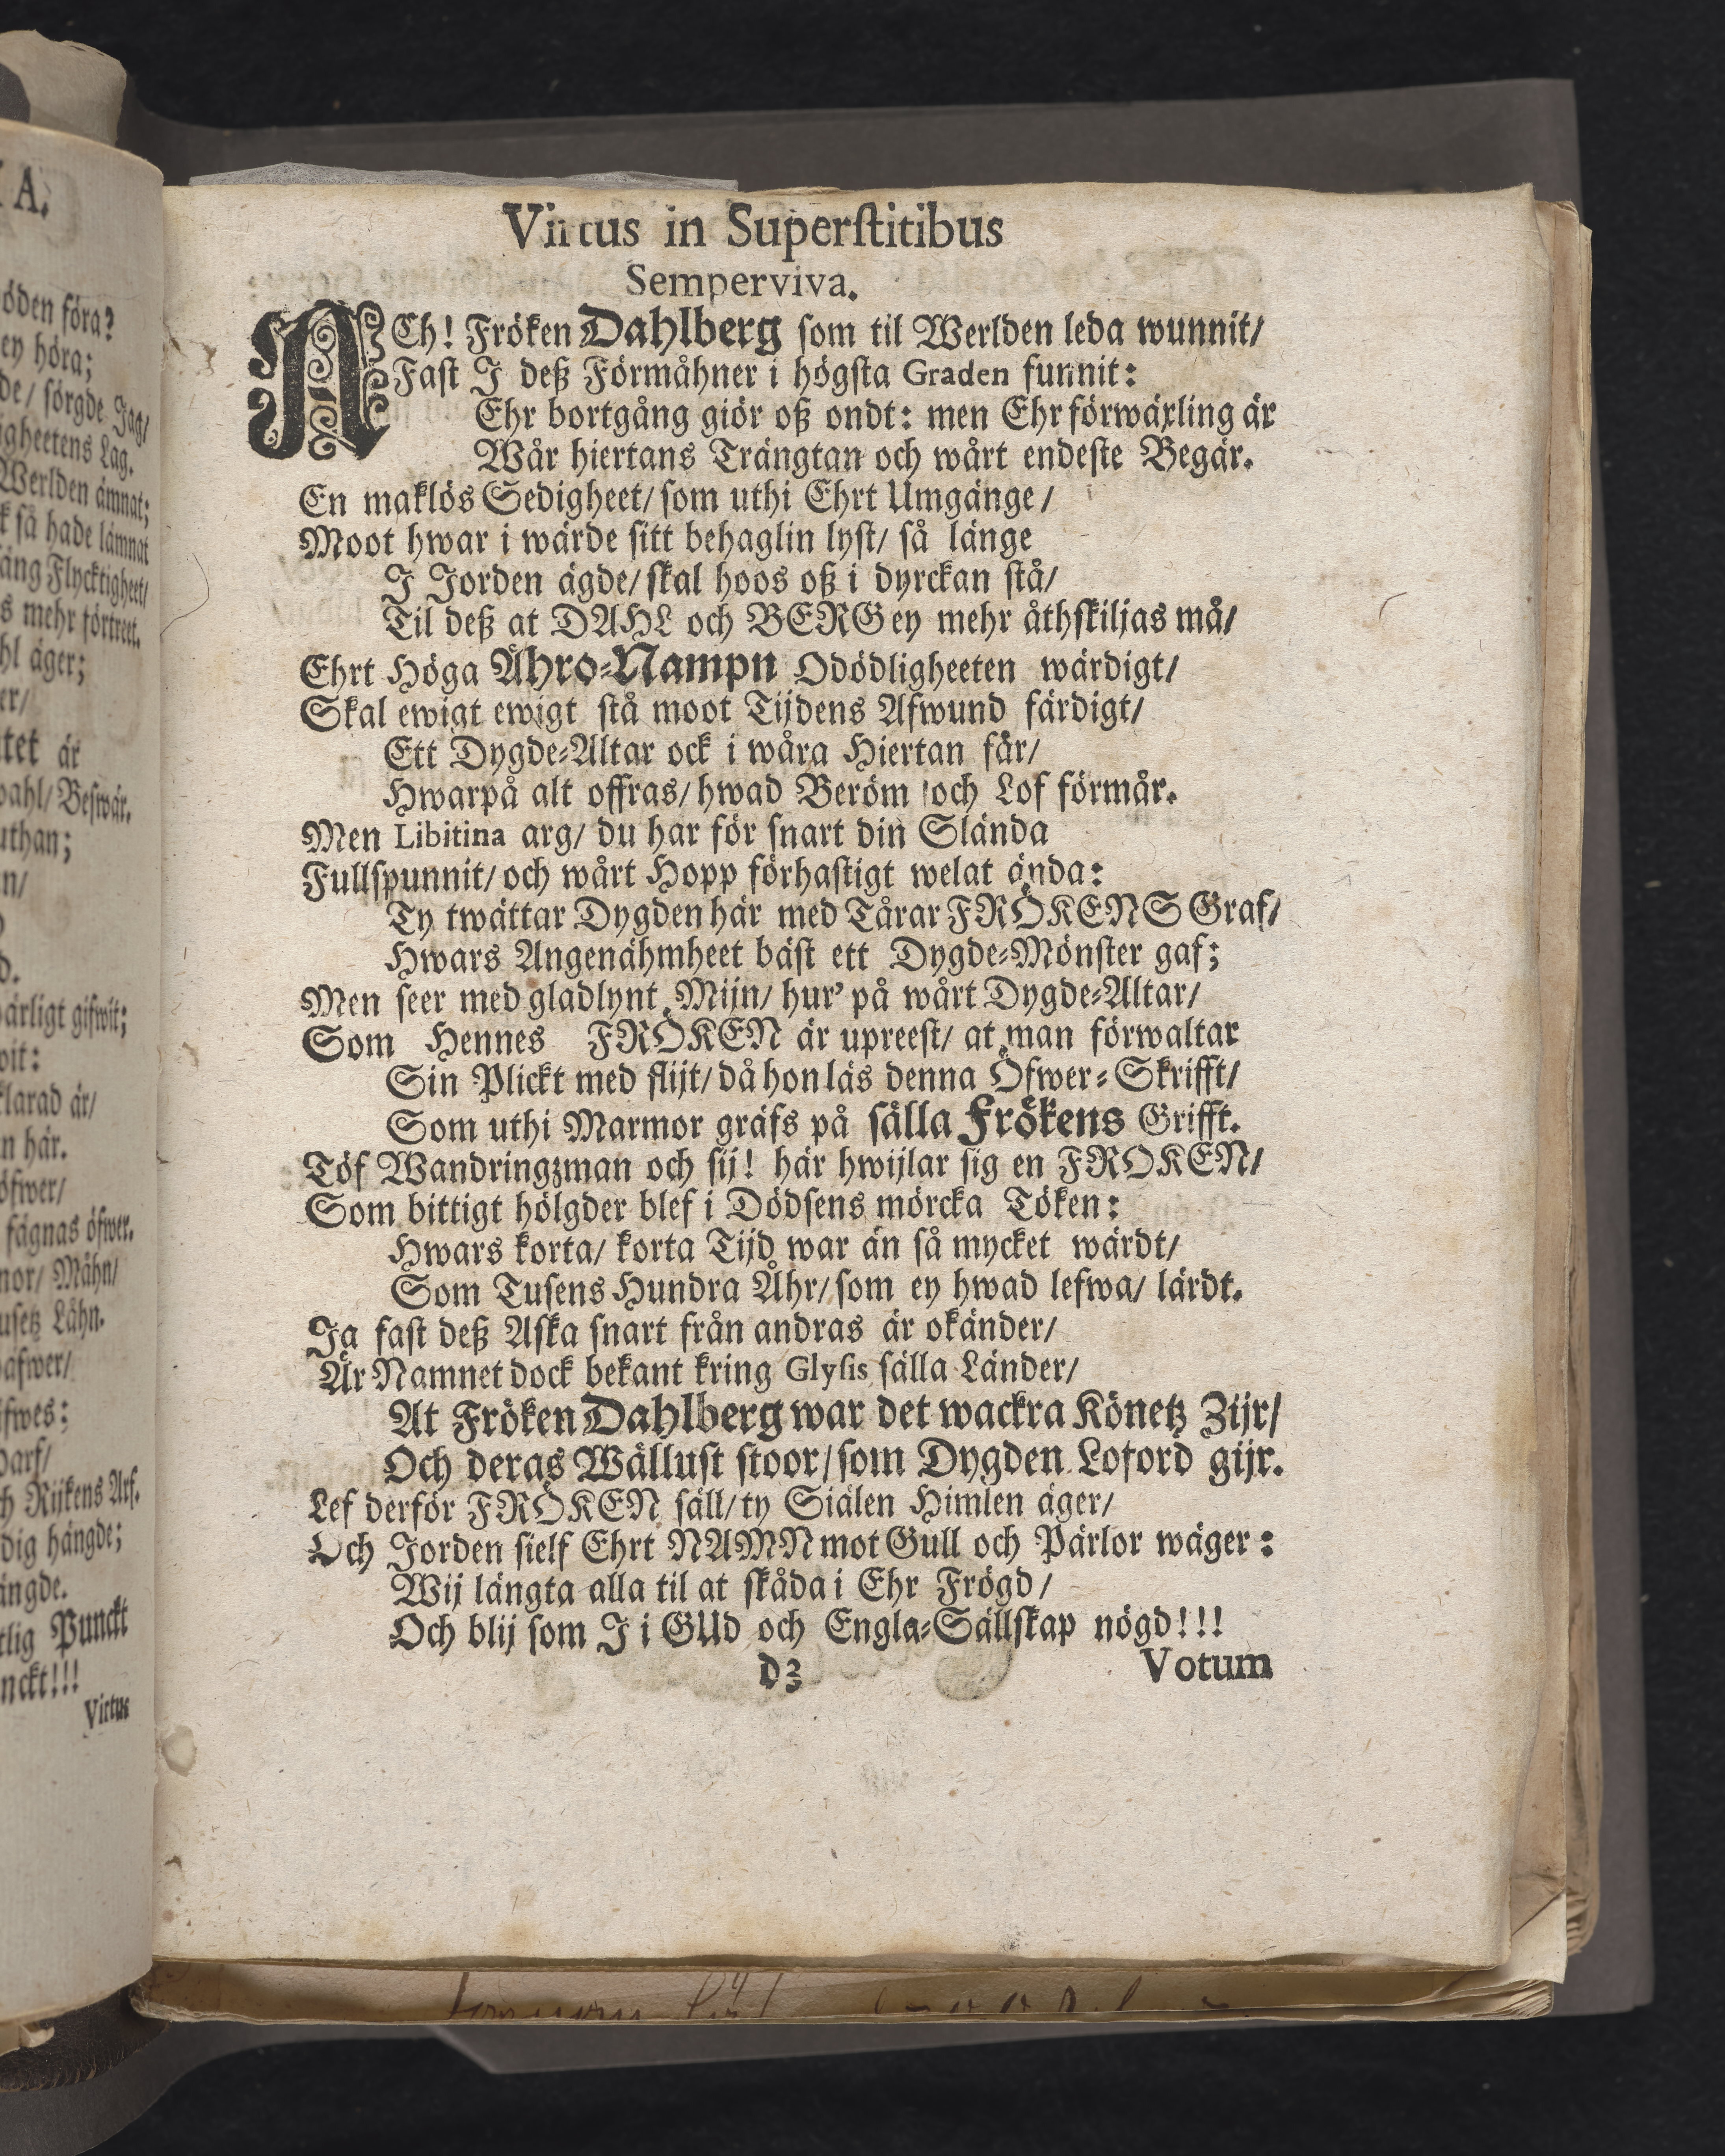 A.
öden föra?
ey höra;
de/ sörgde Jag/
igheetens Lag.
Werlden ämnat;
så hade lämnat
äng Flycktigheet/
s mehr förtreet.
hl äger;
er/
tet är
wahl/ Beswär.
uthan;
n/
d.
wärligt gifwit;
wit:
klarad är/
n här.
öfwer/
fägnas öfwer.
nor/ Mähn/
usetz Lähn.
afwer/
fwes:
darf/
h Rijkens Arf.
dig hängde;
ängde.
tlig Punckt
nckt!!!
Virtus
Virtus in Superſtitibus
Semperviva.
ACh! Fröken Dahlberg ſom til Werlden leda wunnit/
Faſt J deß Förmåhner i högſta Graden funnit:
Ehr bortgång giör oß ondt: men Ehr förwäxling är
Wår hiertans Trängtan och wårt endeſte Begär.
En maklös Sedigheet/ ſom uthi Ehrt Umgänge/
Moot hwar i wärde ſitt behaglin lyſt/ ſå länge
J Jorden ägde/ ſkal hoos oß i dyrckan ſtå/
Til deß at DAHL och BERG ey mehr åthſkiljas må/
Ehrt Höga Ähro-Nampn Odödligheeten wärdigt/
Skal ewigt ewigt ſtå moot Tijdens Afwund färdigt/
Ett Dygde-Altar ock i wåra Hiertan får/
Hwarpå alt offras/ hwad Beröm och Lof förmår.
Men Libitina arg/ du har för ſnart din Slända
Fullſpunnit/ och wårt Hopp förhaſtigt welat ända:
Ty twättar Dygden här med Tårar FRÖKENS Graf/
Hwars Angenähmheet bäſt ett Dygde-Mönſter gaf;
Men ſeer med gladlynt Mijn/ hur' på wårt Dygde-Altar/
Som Hennes FRÖKEN är upreeſt/ at man förwaltar
Sin Plickt med flijt/ då hon läs denna Öfwer-Skrifft/
Som uthi Marmor gräfs på ſälla Frökens Grifft.
Töf Wandringzman och ſij! här hwijlar ſig en FRÖKEN/
Som bittigt hölgder blef i Dödſens mörcka Töken:
Hwars korta/ korta Tijd war än ſå mycket wärdt/
Som Tuſens Hundra Åhr/ ſom ey hwad lefwa/ lärdt.
Ja faſt deß Aſka ſnart från andras är okänder/
Är Namnet dock bekant kring Glyſis ſälla Länder/
At Fröken Dahlberg war det wackra Könetz Zijr/
Och deras Wälluſt ſtoor/ ſom Dygden Loford gijr.
Lef derför FRÖKEN ſäll/ ty Siälen Himlen äger/
Och Jorden ſielf Ehrt NAMN mot Gull och Pärlor wäger:
Wij längta alla til at ſkåda i Ehr Frögd/
Och blij ſom J i GUd och Engla-Sällſkap nögd!!!
d3 Votum